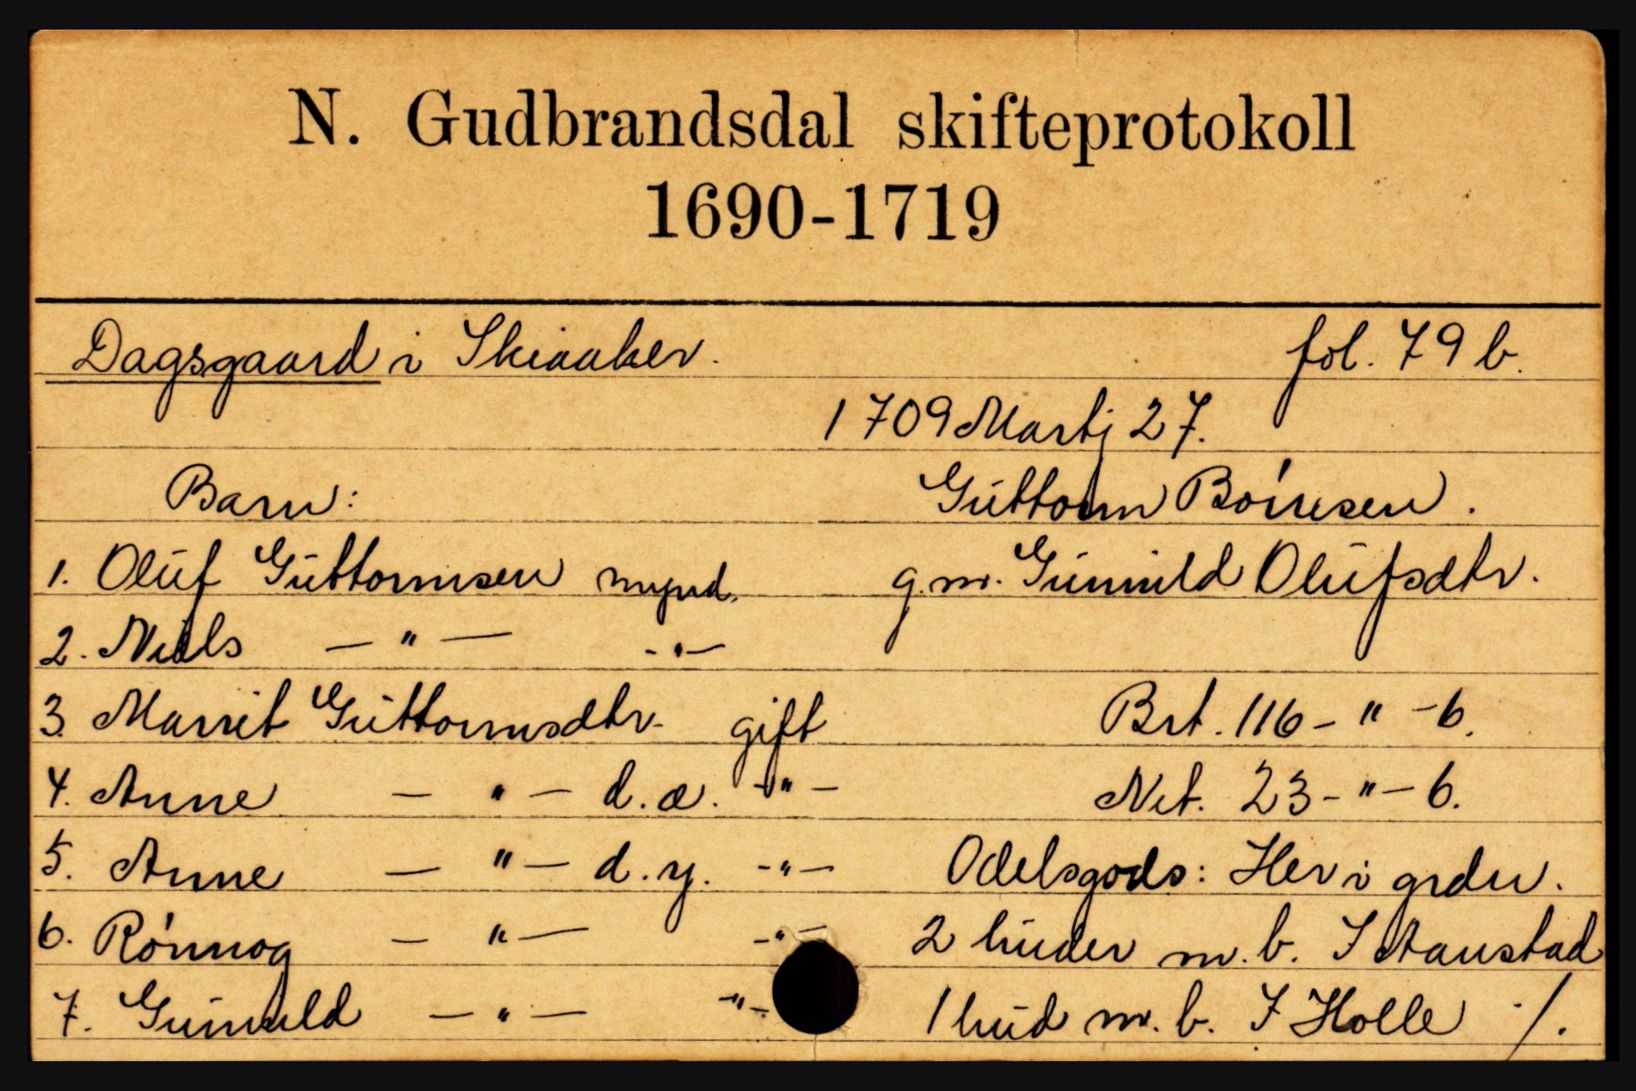 N. Gudbrandsdal skifteprotokoll
1690-1719
Dagsgaard i Skiaaker. fol. 79 b.
1709 Martj 27.
Barn: Guttorm Börresen.
1. Oluf Guttormsen mynd. g.m. Gunnild Olufsdtr.
2. Niels — " — - " —
3. Marrit Guttormsdtr. gift Brt. 116 - " - 6.
4. Anne — " — d.æ. - " - Net. 23 - " - 6.
5. Anne — " — d.y. - " - Odelsgods: Her i grdn.
6. Rönnog — " — - " - 2 huder m.b. I Aanstad
7. Gunnild — " — - " - 1 hud m.b. I Holle ·/.